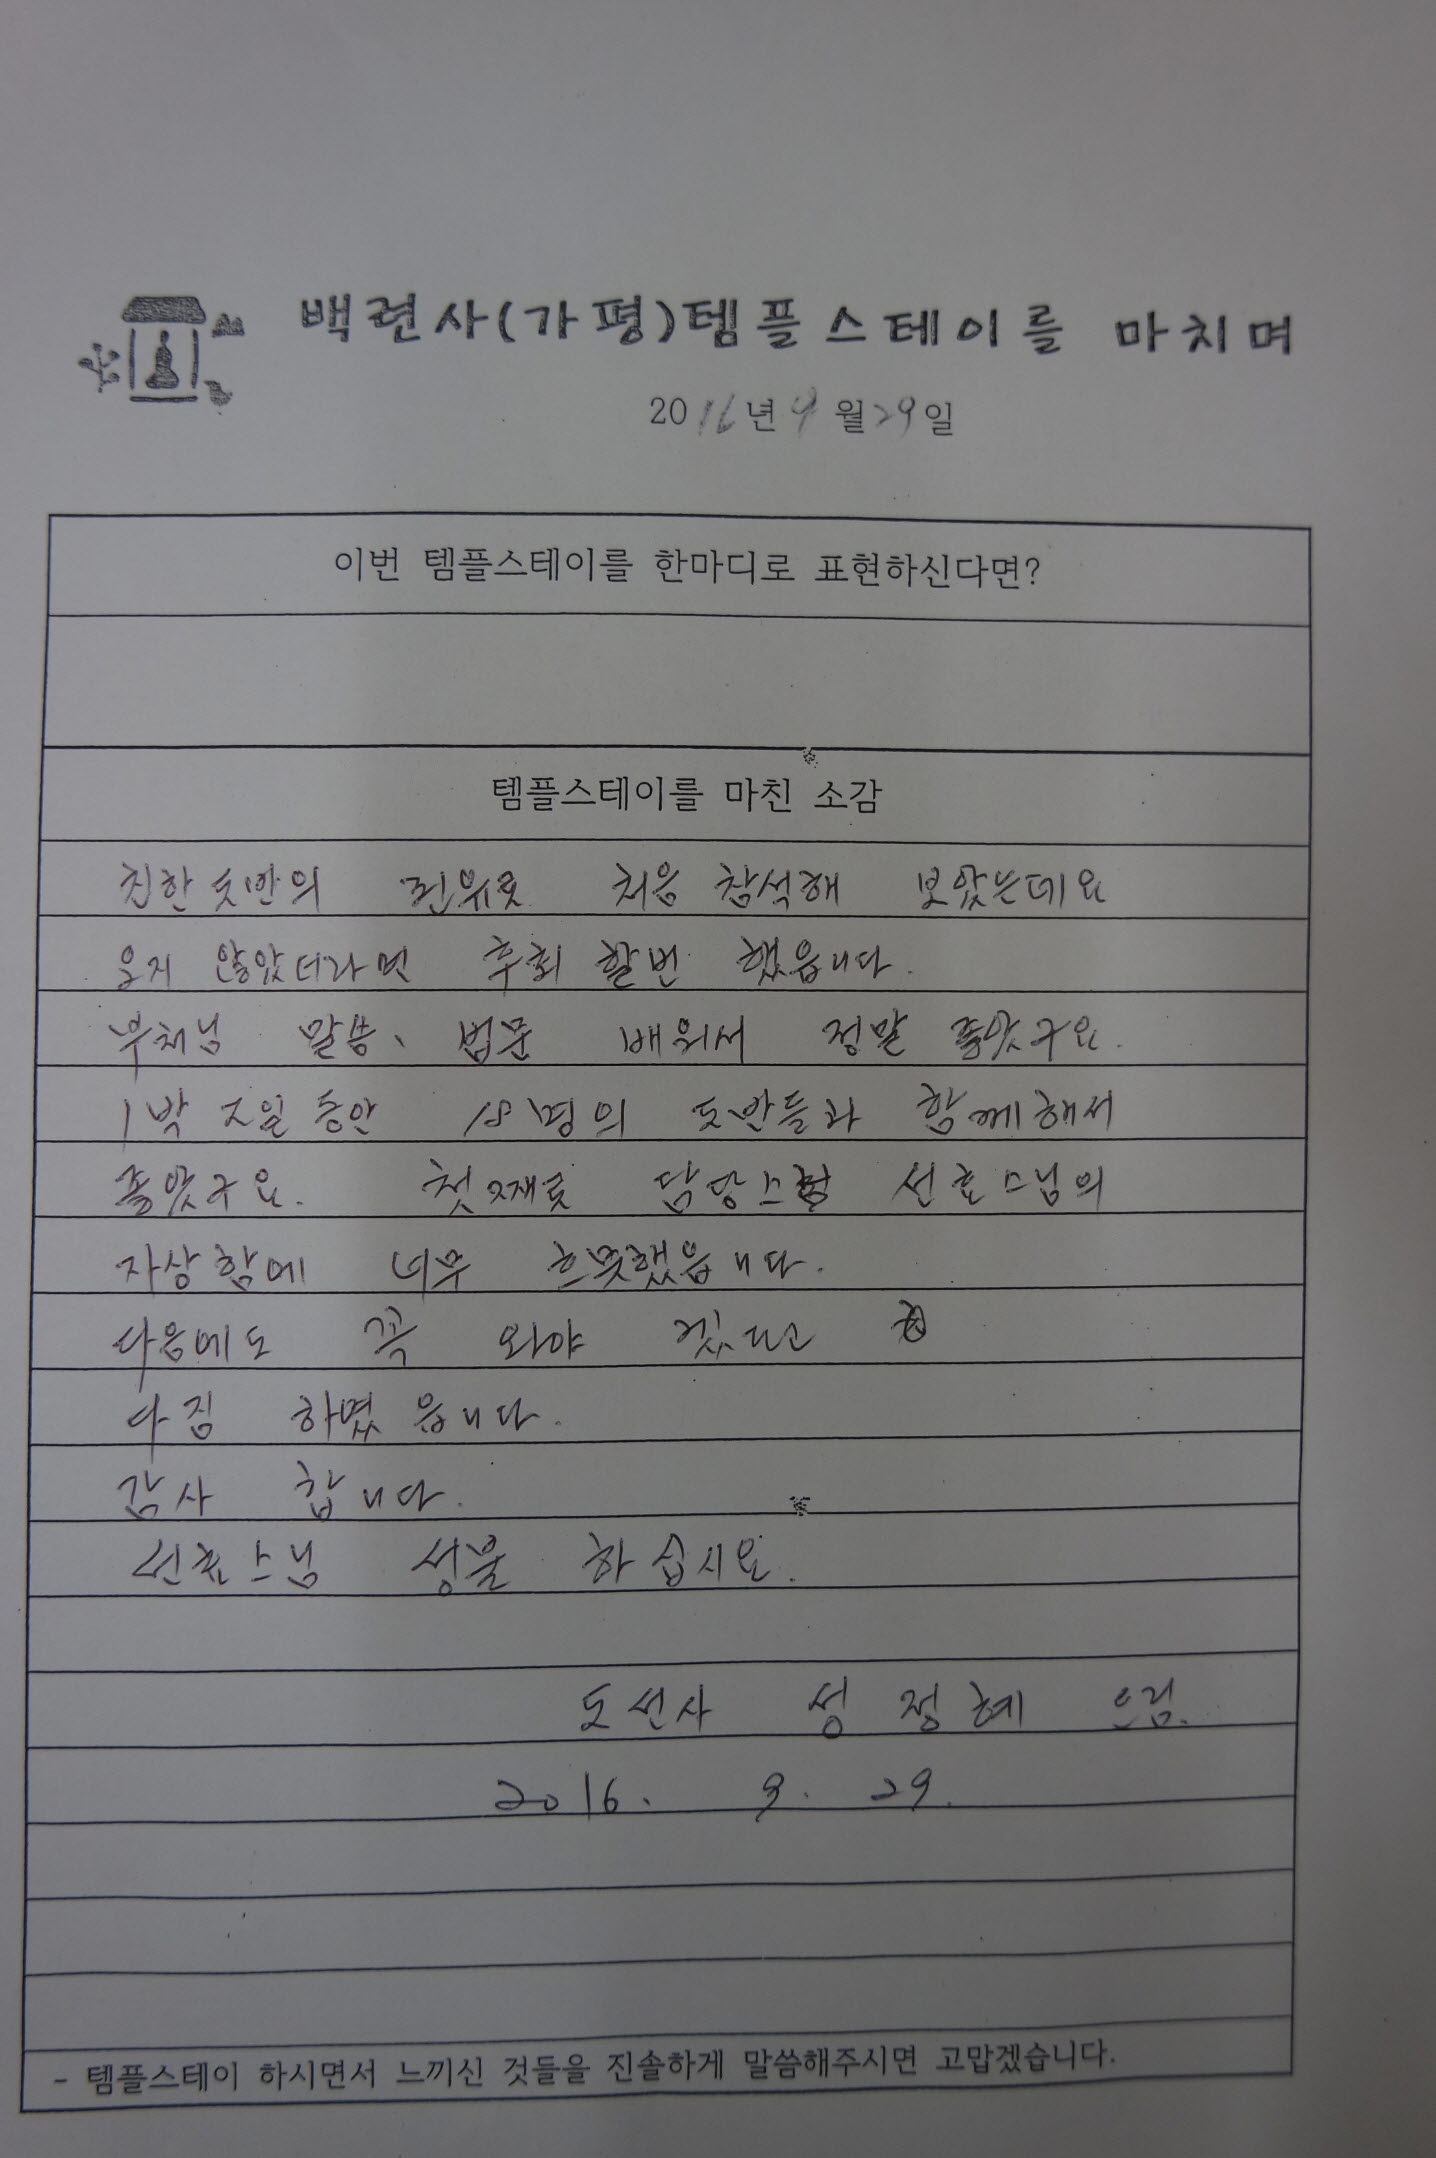 백련사(가평)템플스테이를 마치며
2016년 9월 29일
이번 템플스테이를 한마디로 표현하신다면?
템플스테이를 마친 소감
친한 도반의 권위로 처음 참석해 보았는데요
오지 않았더라면 후회 할번 했읍니다.
부처님 말씀, 법문 배워서 정말 좋았구요.
1박 2일 동안 18명의 도반들과 함께해서
좋았구요. 첫째로 담당스님 선효스님의
자상함에 너무 흐뭇했읍니다.
다음에도 꼭 와야 겠다고
다짐 하였읍니다.
감사 합니다.
선효스님 성불 하십시요.
도선사 성정혜 드림.
2016. 9. 29.
- 템플스테이 하시면서 느끼신 것들을 진솔하게 말씀해주시면 고맙겠습니다.